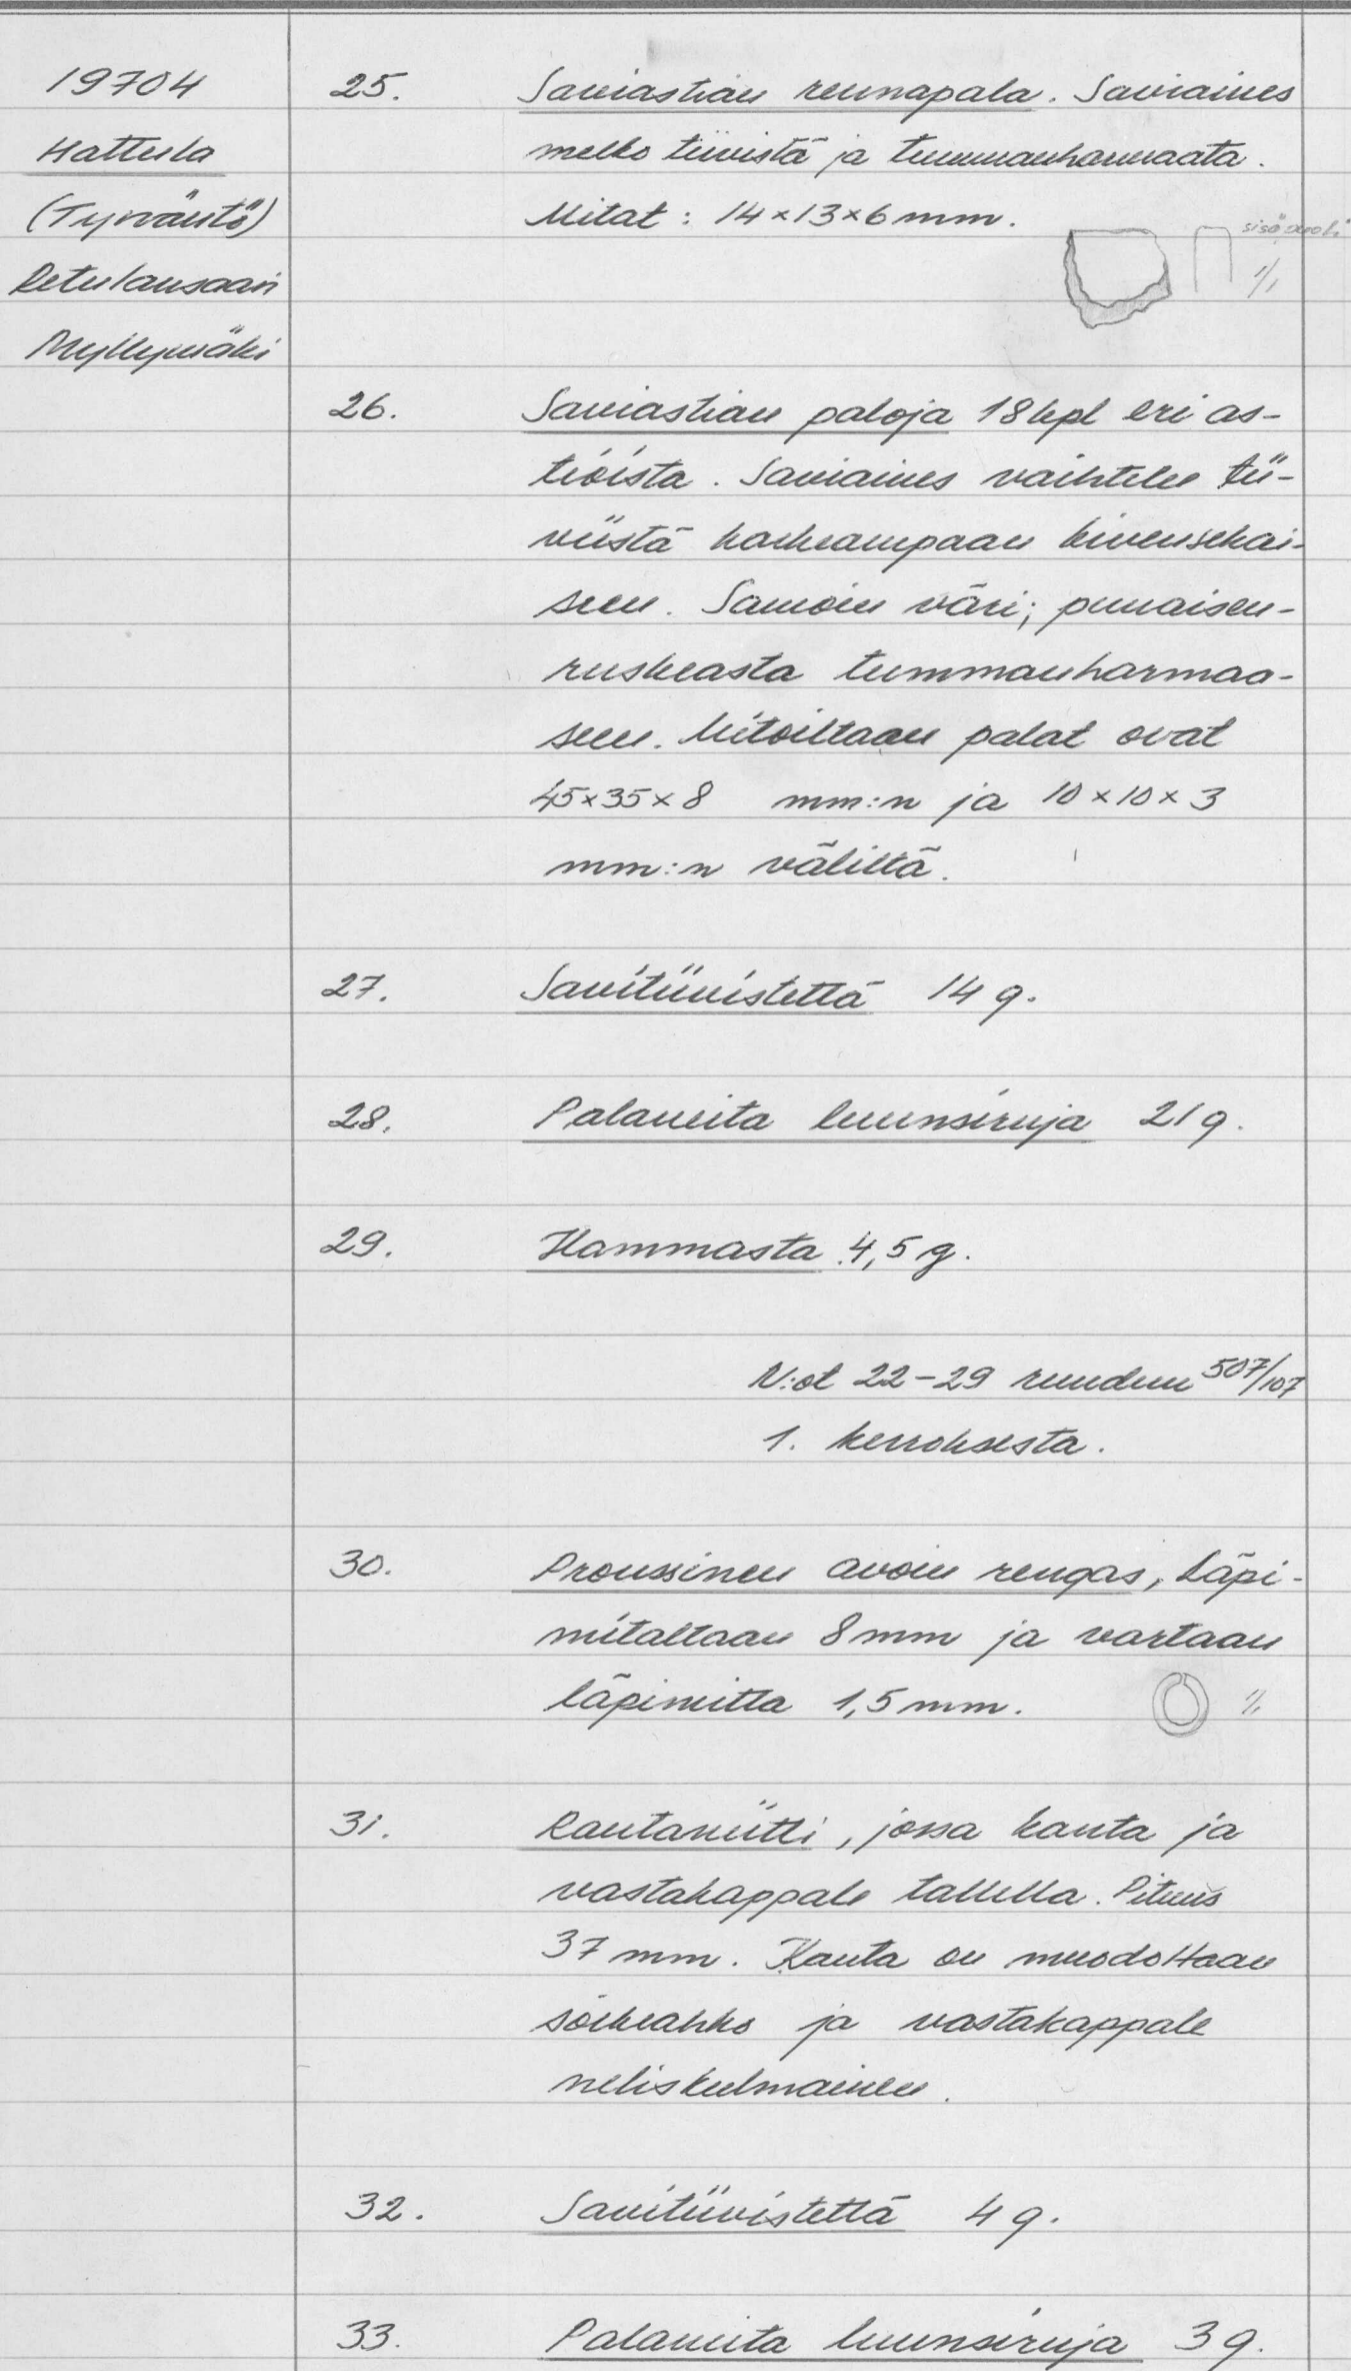 19704
Hattula
(Tyrväntö)
Retulansaari
Myllymäki
25. Saviastian reunapala. Saviaines
melko tiivistä ja tummanharmaata.
Mitat: 14×13×6 mm.
sisäpuoli
1/1
26. Saviastian paloja 18 kpl eri as-
tioista. Saviaines vaihtelee tii-
viistä karkeampaan kivensekai-
seen. Samoin väri; punaisen-
ruskeasta tummanharmaa-
seen. Mitoiltaan palat ovat
45×35×8 mm:n ja 10×10×3
mm:n väliltä.
27. Savitiivistettä 14 g.
28. Palaneita luunsiruja 21 g.
29. Hammasta 4,5 g.
N:ot 22-29 ruudun 507/107
1. kerroksesta.
30. Pronssinen avoin rengas, läpi-
mitaltaan 8 mm ja vartaan
läpimitta 1,5 mm.
1/1
31. Rautaniitti, jossa kanta ja
vastakappale tallella. Pituus
37 mm. Kanta on muodoltaan
soikeahko ja vastakappale
neliskulmainen.
32. Savitiivistettä 4 g.
33. Palaneita luunsiruja 3 g.